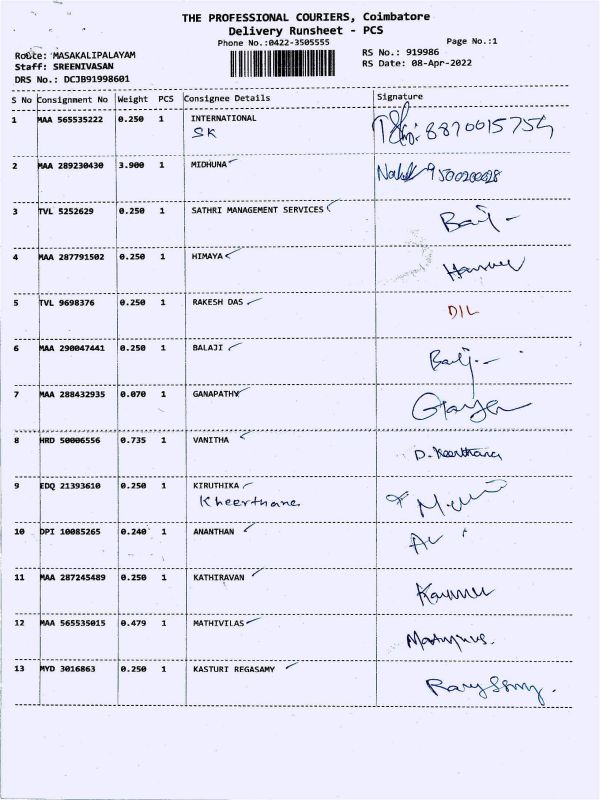 THE PROFESSIONAL COURIERS, Coimbatore
Delivery Runsheet - PCS
Phone No.:0422-3505555
Page No.:1
Route: MASAKALIPALAYAM
RS No.: 919986
Staff: SREENIVASAN
RS Date: 08-Apr-2022
DRS No.: DCJB91998601
S No Consignment No Weight PCS Consignee Details Signature
1 MAA 565535222 0.250 1 INTERNATIONAL
SK 8870015754
2 MAA 289230430 3.900 1 MIDHUNA 9500200028
3 TVL 5252629 0.250 1 SATHRI MANAGEMENT SERVICES
4 MAA 287791502 0.250 1 HIMAYA
5 TVL 9698376 0.250 1 RAKESH DAS DIL
6 MAA 290047441 0.250 1 BALAJI
7 MAA 288432935 0.070 1 GANAPATHY
8 HRD 50006556 0.735 1 VANITHA D. Keerthana
9 EDQ 21393610 0.250 1 KIRUTHIKA
Kheerthane
10 DPI 10085265 0.240 1 ANANTHAN
11 MAA 287245489 0.250 1 KATHIRAVAN
12 MAA 565535015 0.479 1 MATHIVILAS
13 MYD 3016863 0.250 1 KASTURI REGASAMY